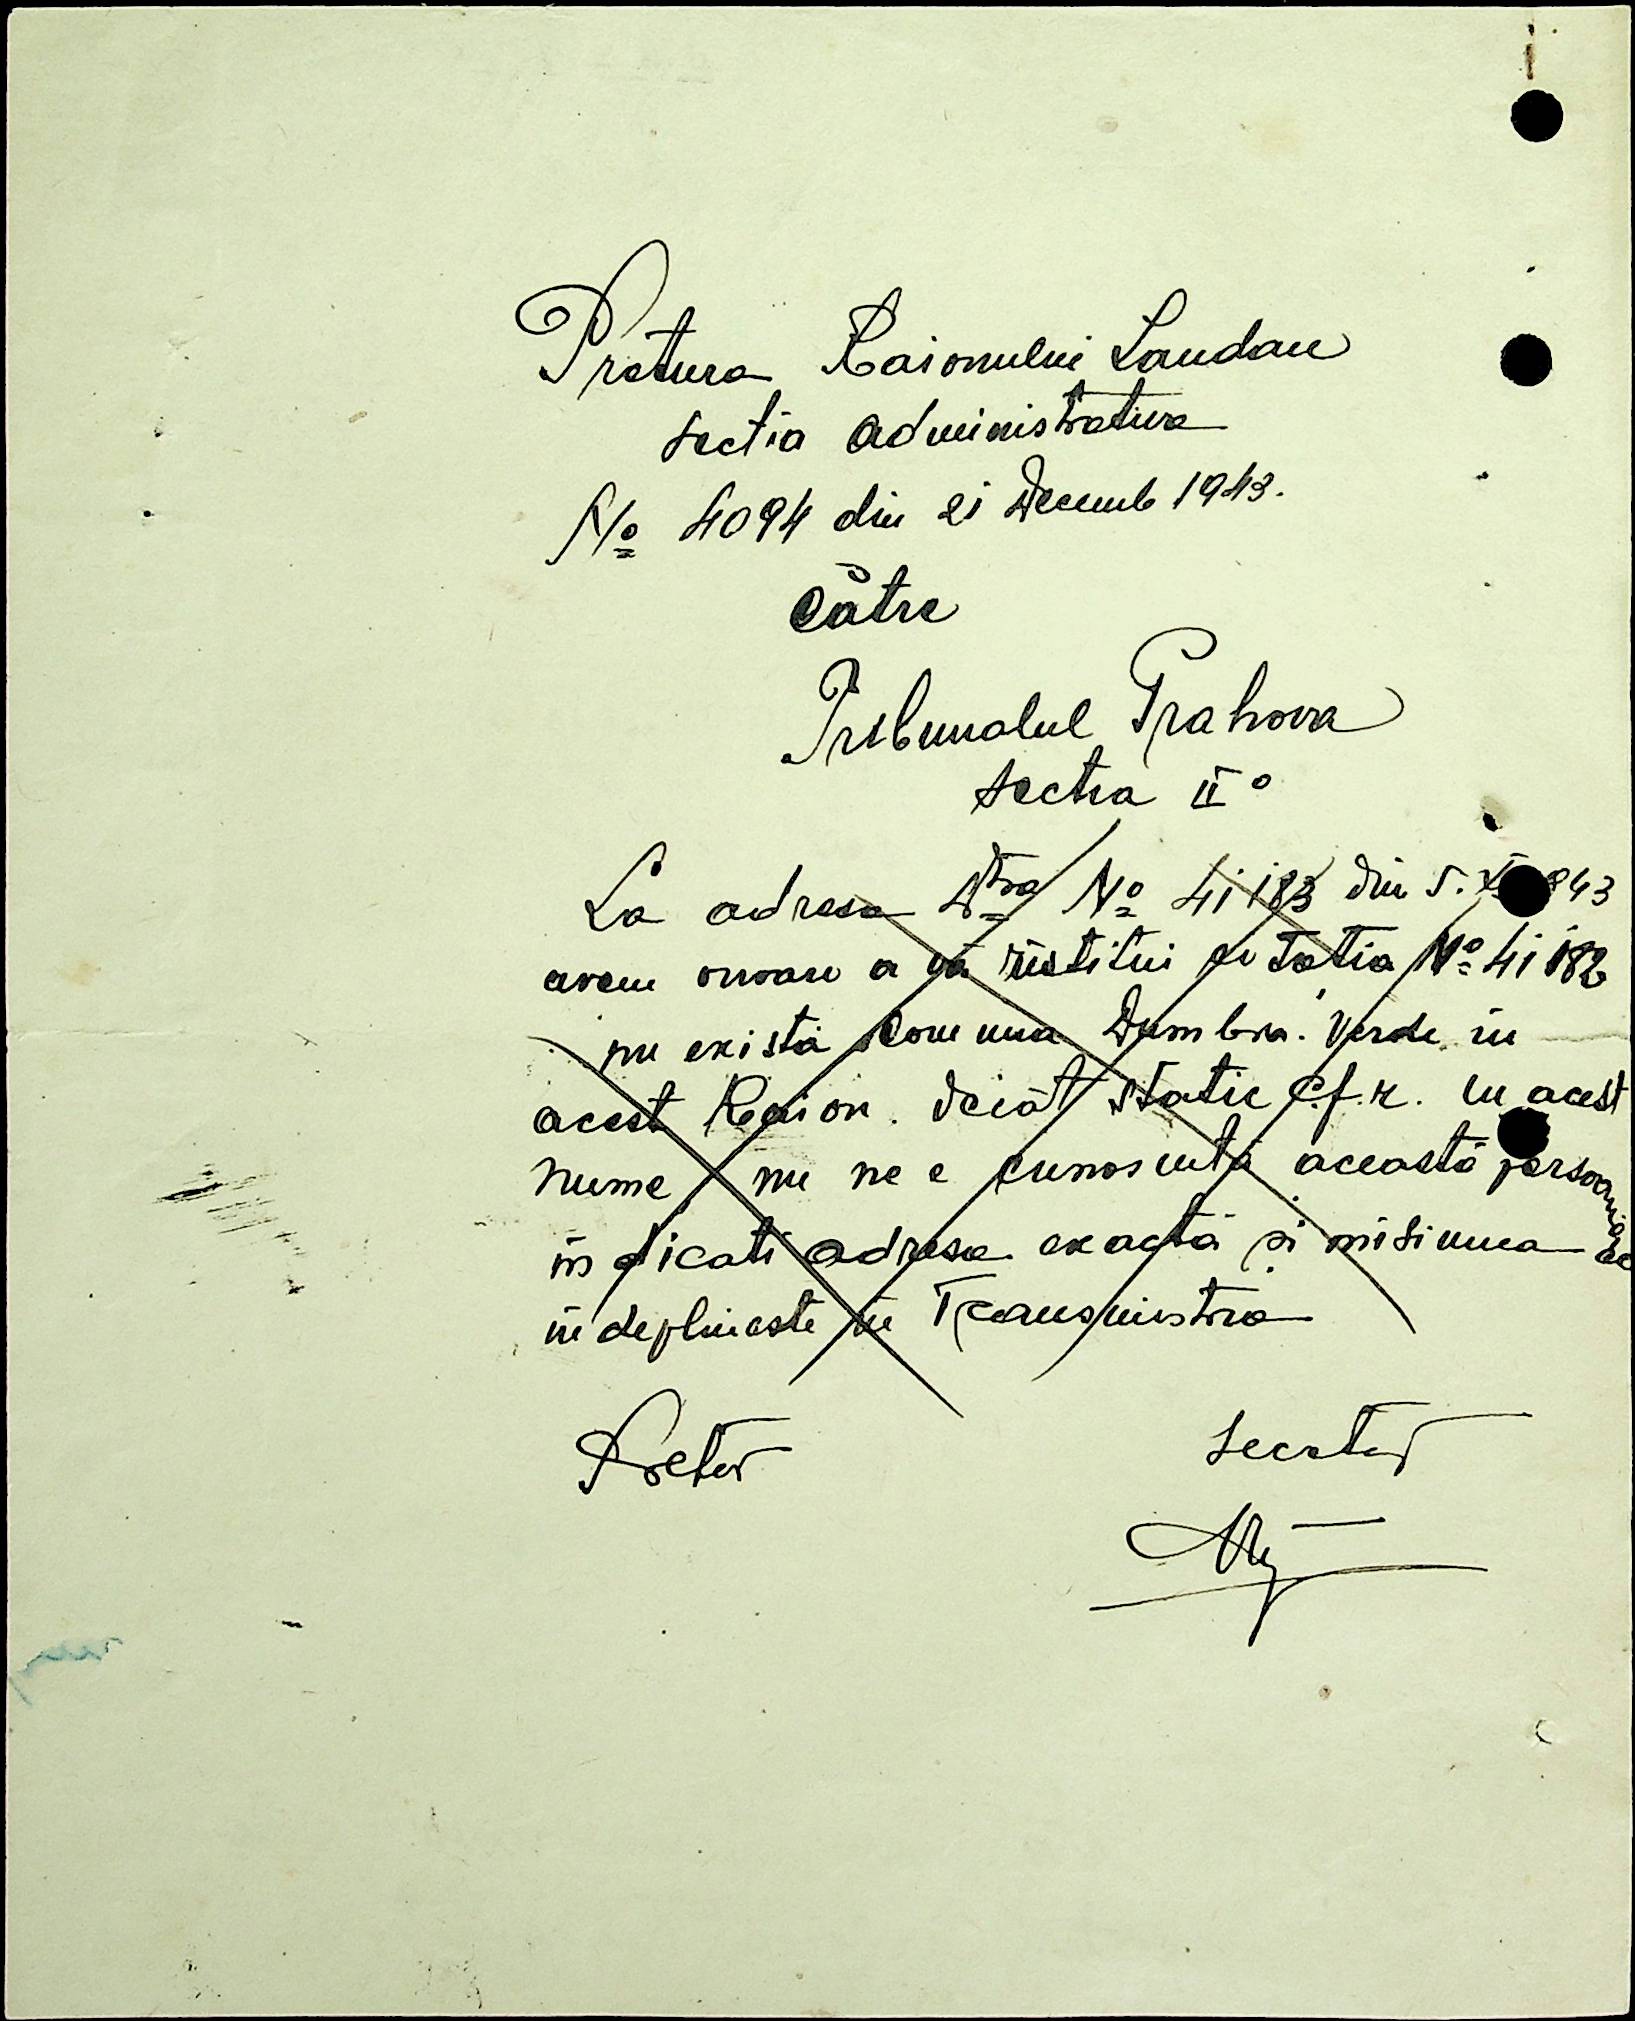 Pretura Raionului Landau
sectia administrativa
No 4094 din 21 Decemb 1943.
Către
Tribunalul Prahova
sectia II a
La adresa Dtra No 41183 din 5. 943
avem onoare a vă restitui citatia No 41182
nu există comuna Dumbra. Verde in
acest Raion. decât statie C.f.r. cu acest
nume, nu ne e cunoscută această persoană
indicati adresa exactă si misiunea ce
indeplineste in Transnistria
Pretor
Secretar